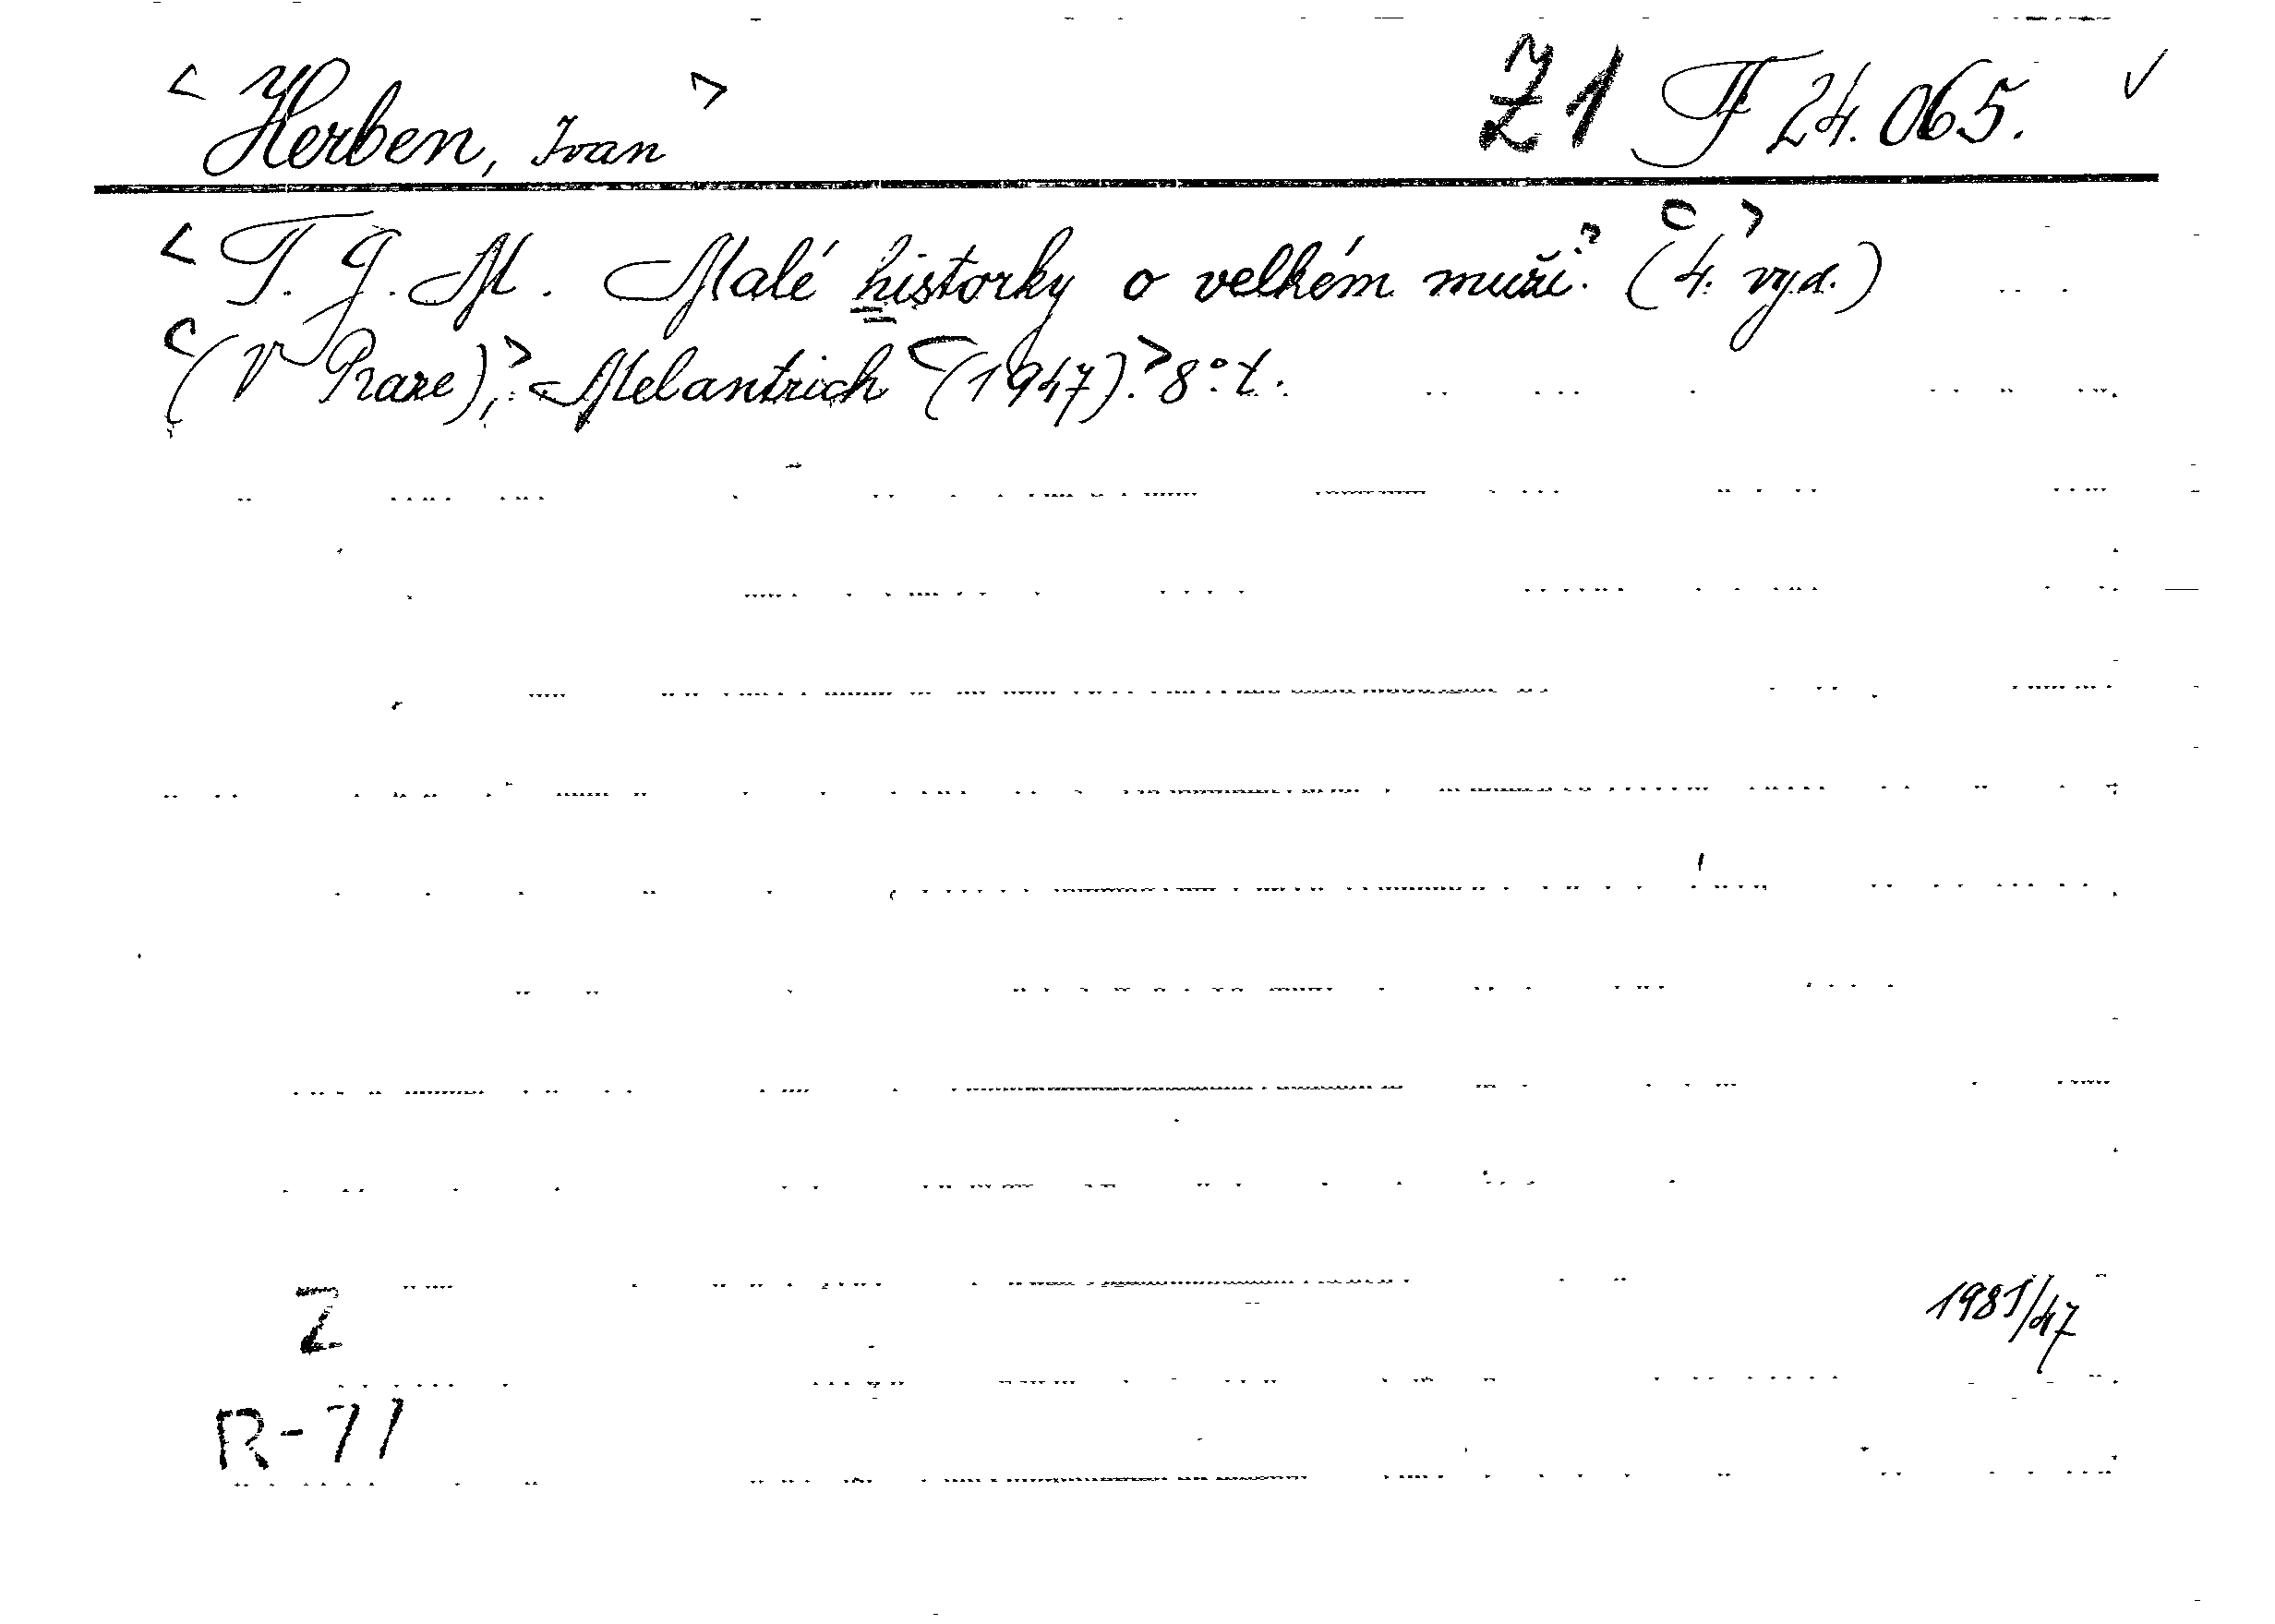 < Herben, Ivan > Ž1 F 24.065. ✓
< T. G. M. Malé historky o velkém muži.> <(4.> vyd.)
<(V Praze),> Melantrich <(1947).> 8° t.
Z 1981/47
R-71